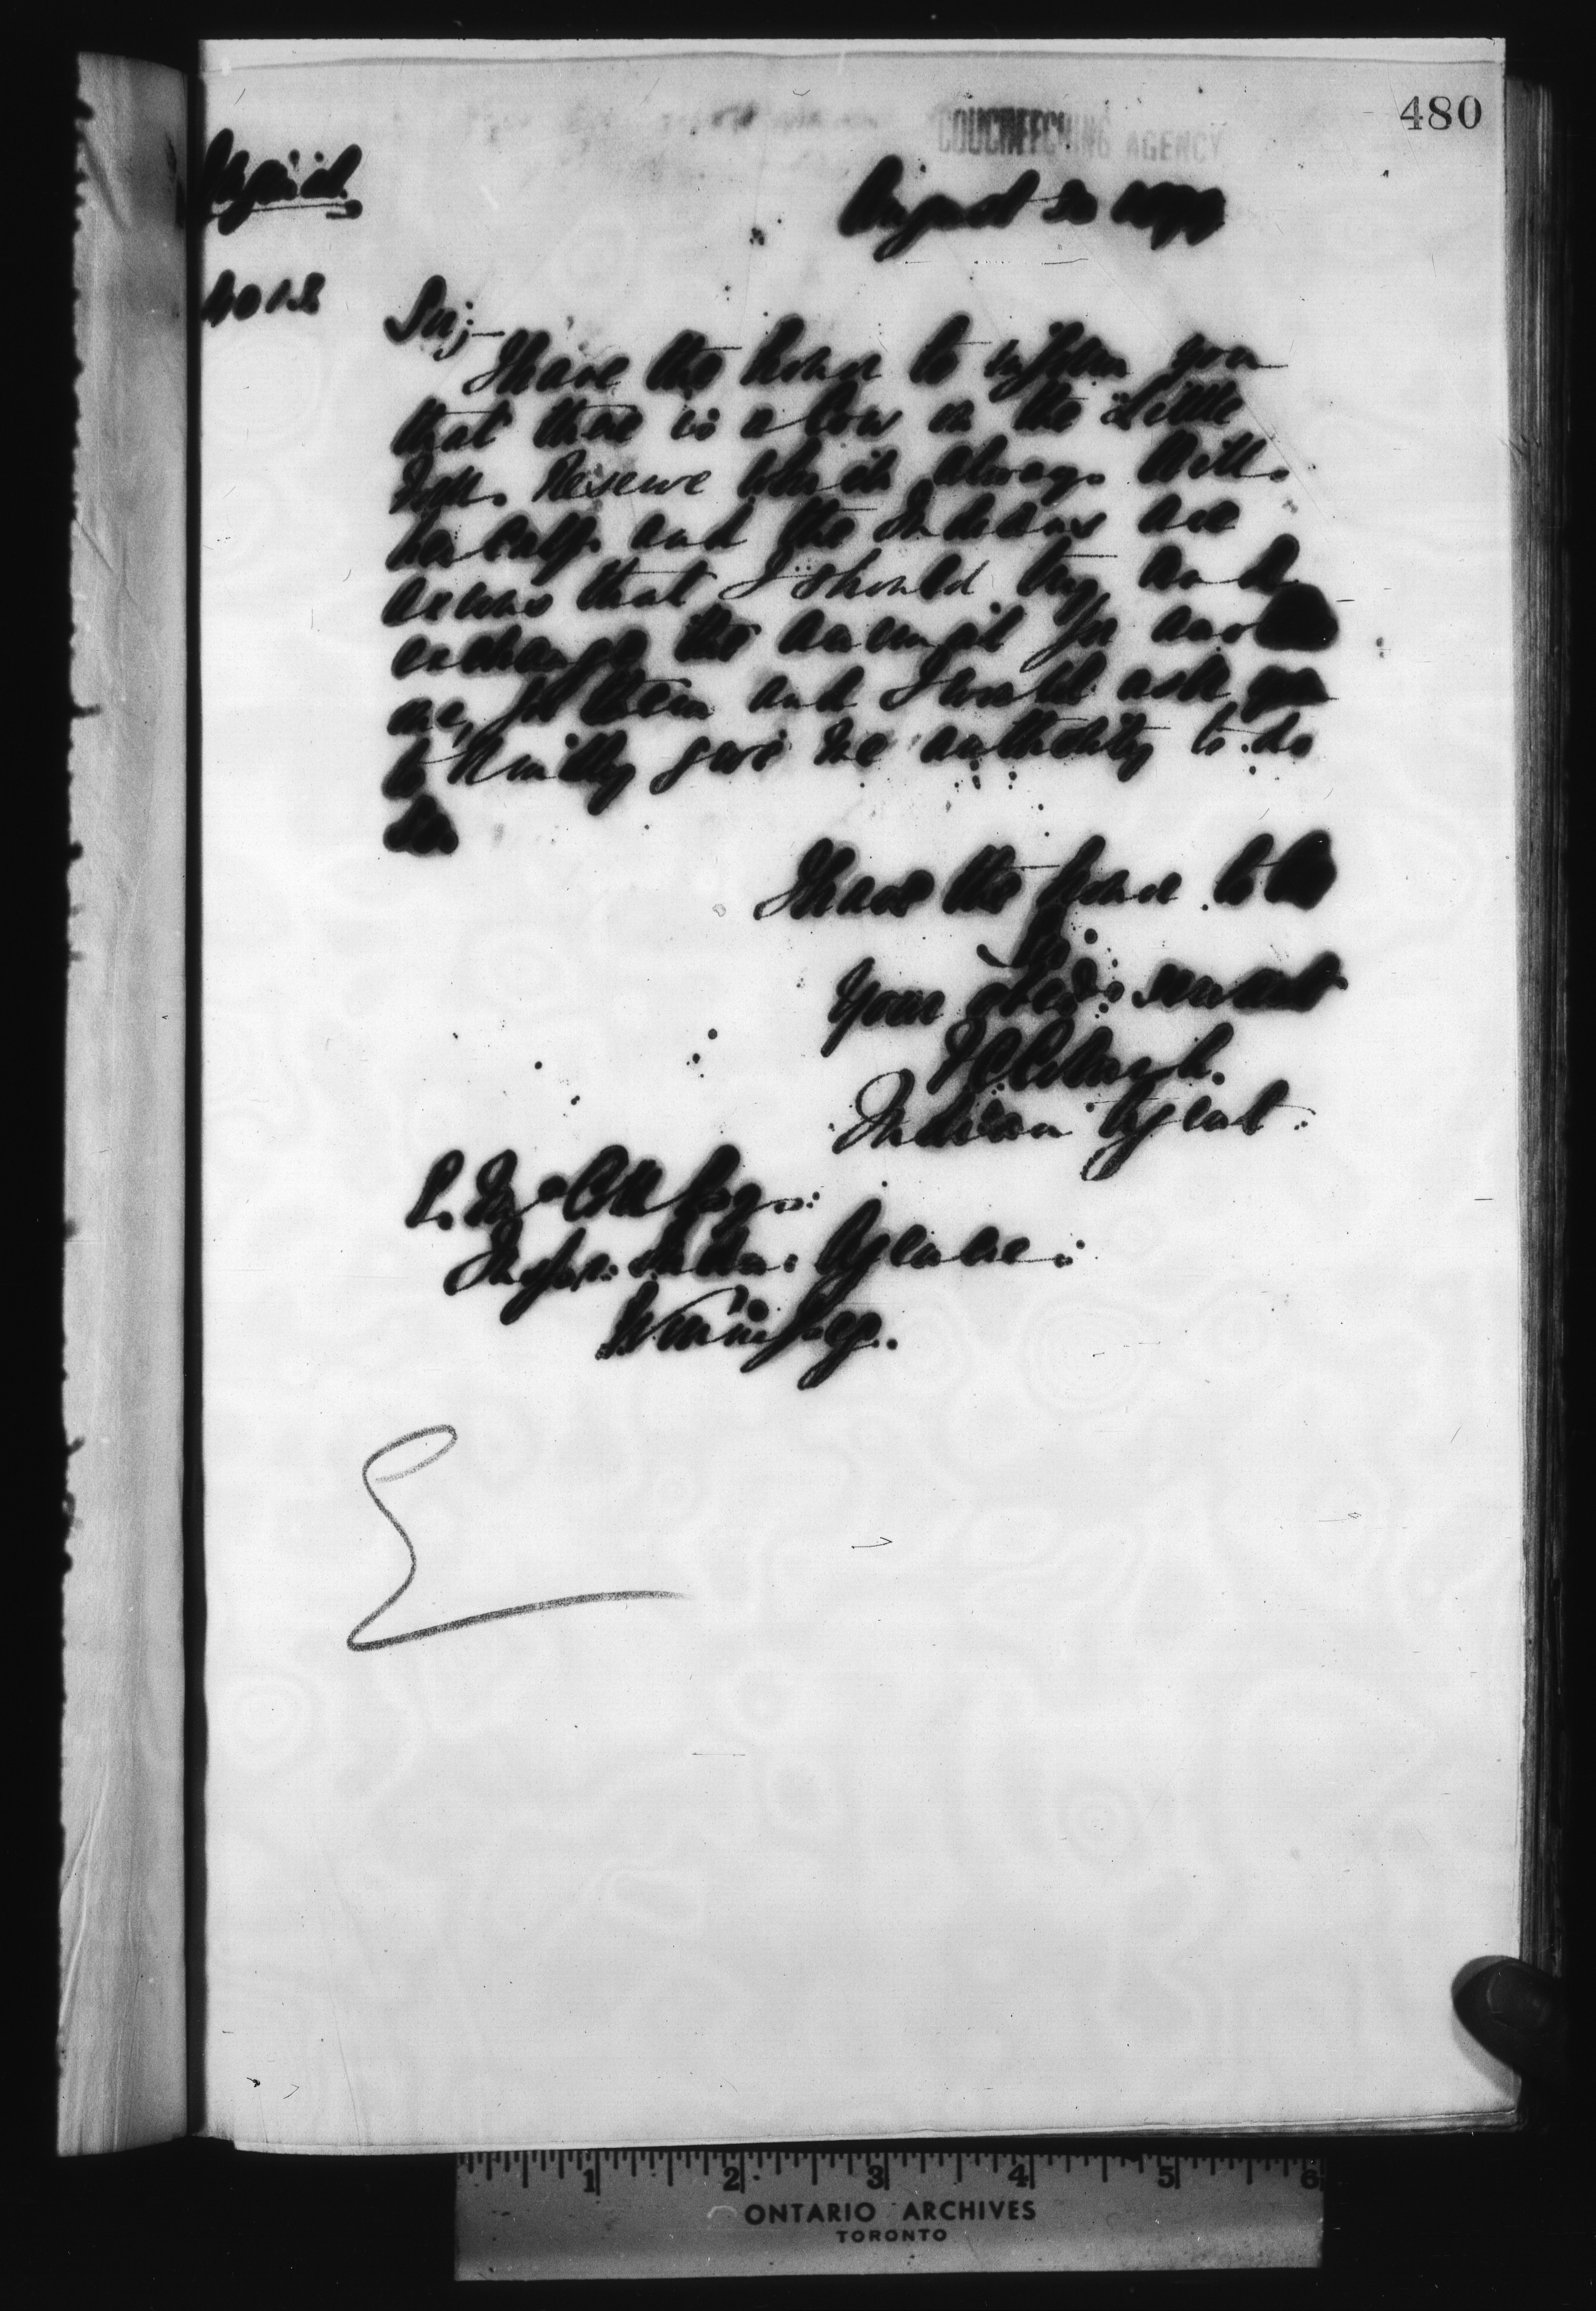 480
COUCHEECHING AGENCY
August 20 1897
No 12
Sir;-
I have the honor to inform you
that there is a cow on the Little
Forks Reserve which always kills
her calf and the Indians are
anxious that I should try and
exchange the animal for another
one, for them and I would ask you
to kindly give me authority to do
so
I have the honor to be
Sir
Your obed: servant
Indian Agent.
Esq.
Inspr. Indian Agencies
Winnipeg.
1 2 3 4 5 6
ONTARIO ARCHIVES
TORONTO